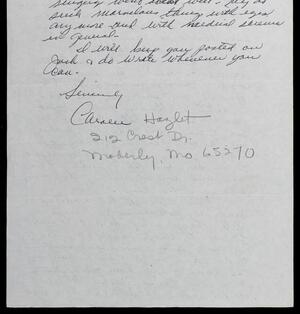 surgery went real well. They do
such marvelous things with eyes
any more and with medical science
in general.
I will keep you posted on
Jack & do write whenever you
can.
Sincerely
Hazlet
212 Crest Dr.
Moberly, Mo 65270